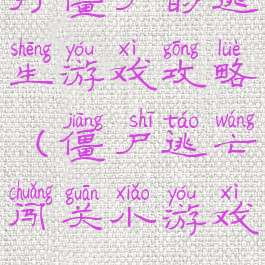 打僵尸的逃
shēng yóu xì gōng lüè
生游戏攻略
jiāng shī táo wáng
（僵尸逃亡
chuǎng guān xiǎo yóu xì
闯关小游戏